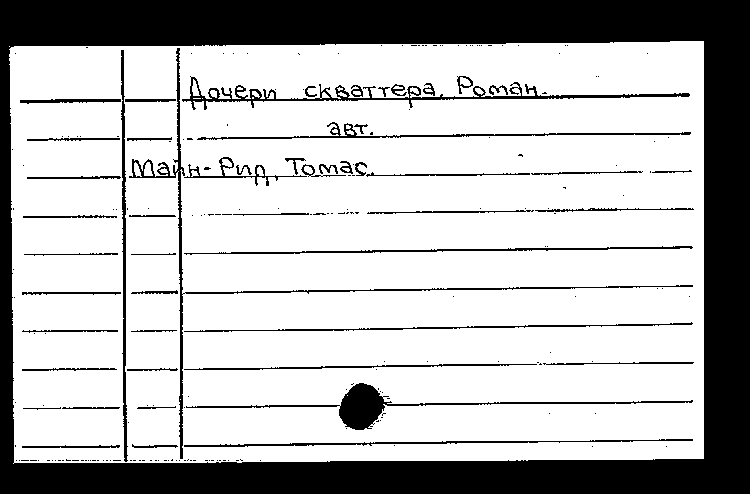 Дочери скваттера. Роман.
авт.
Майн-Рид, Томас.